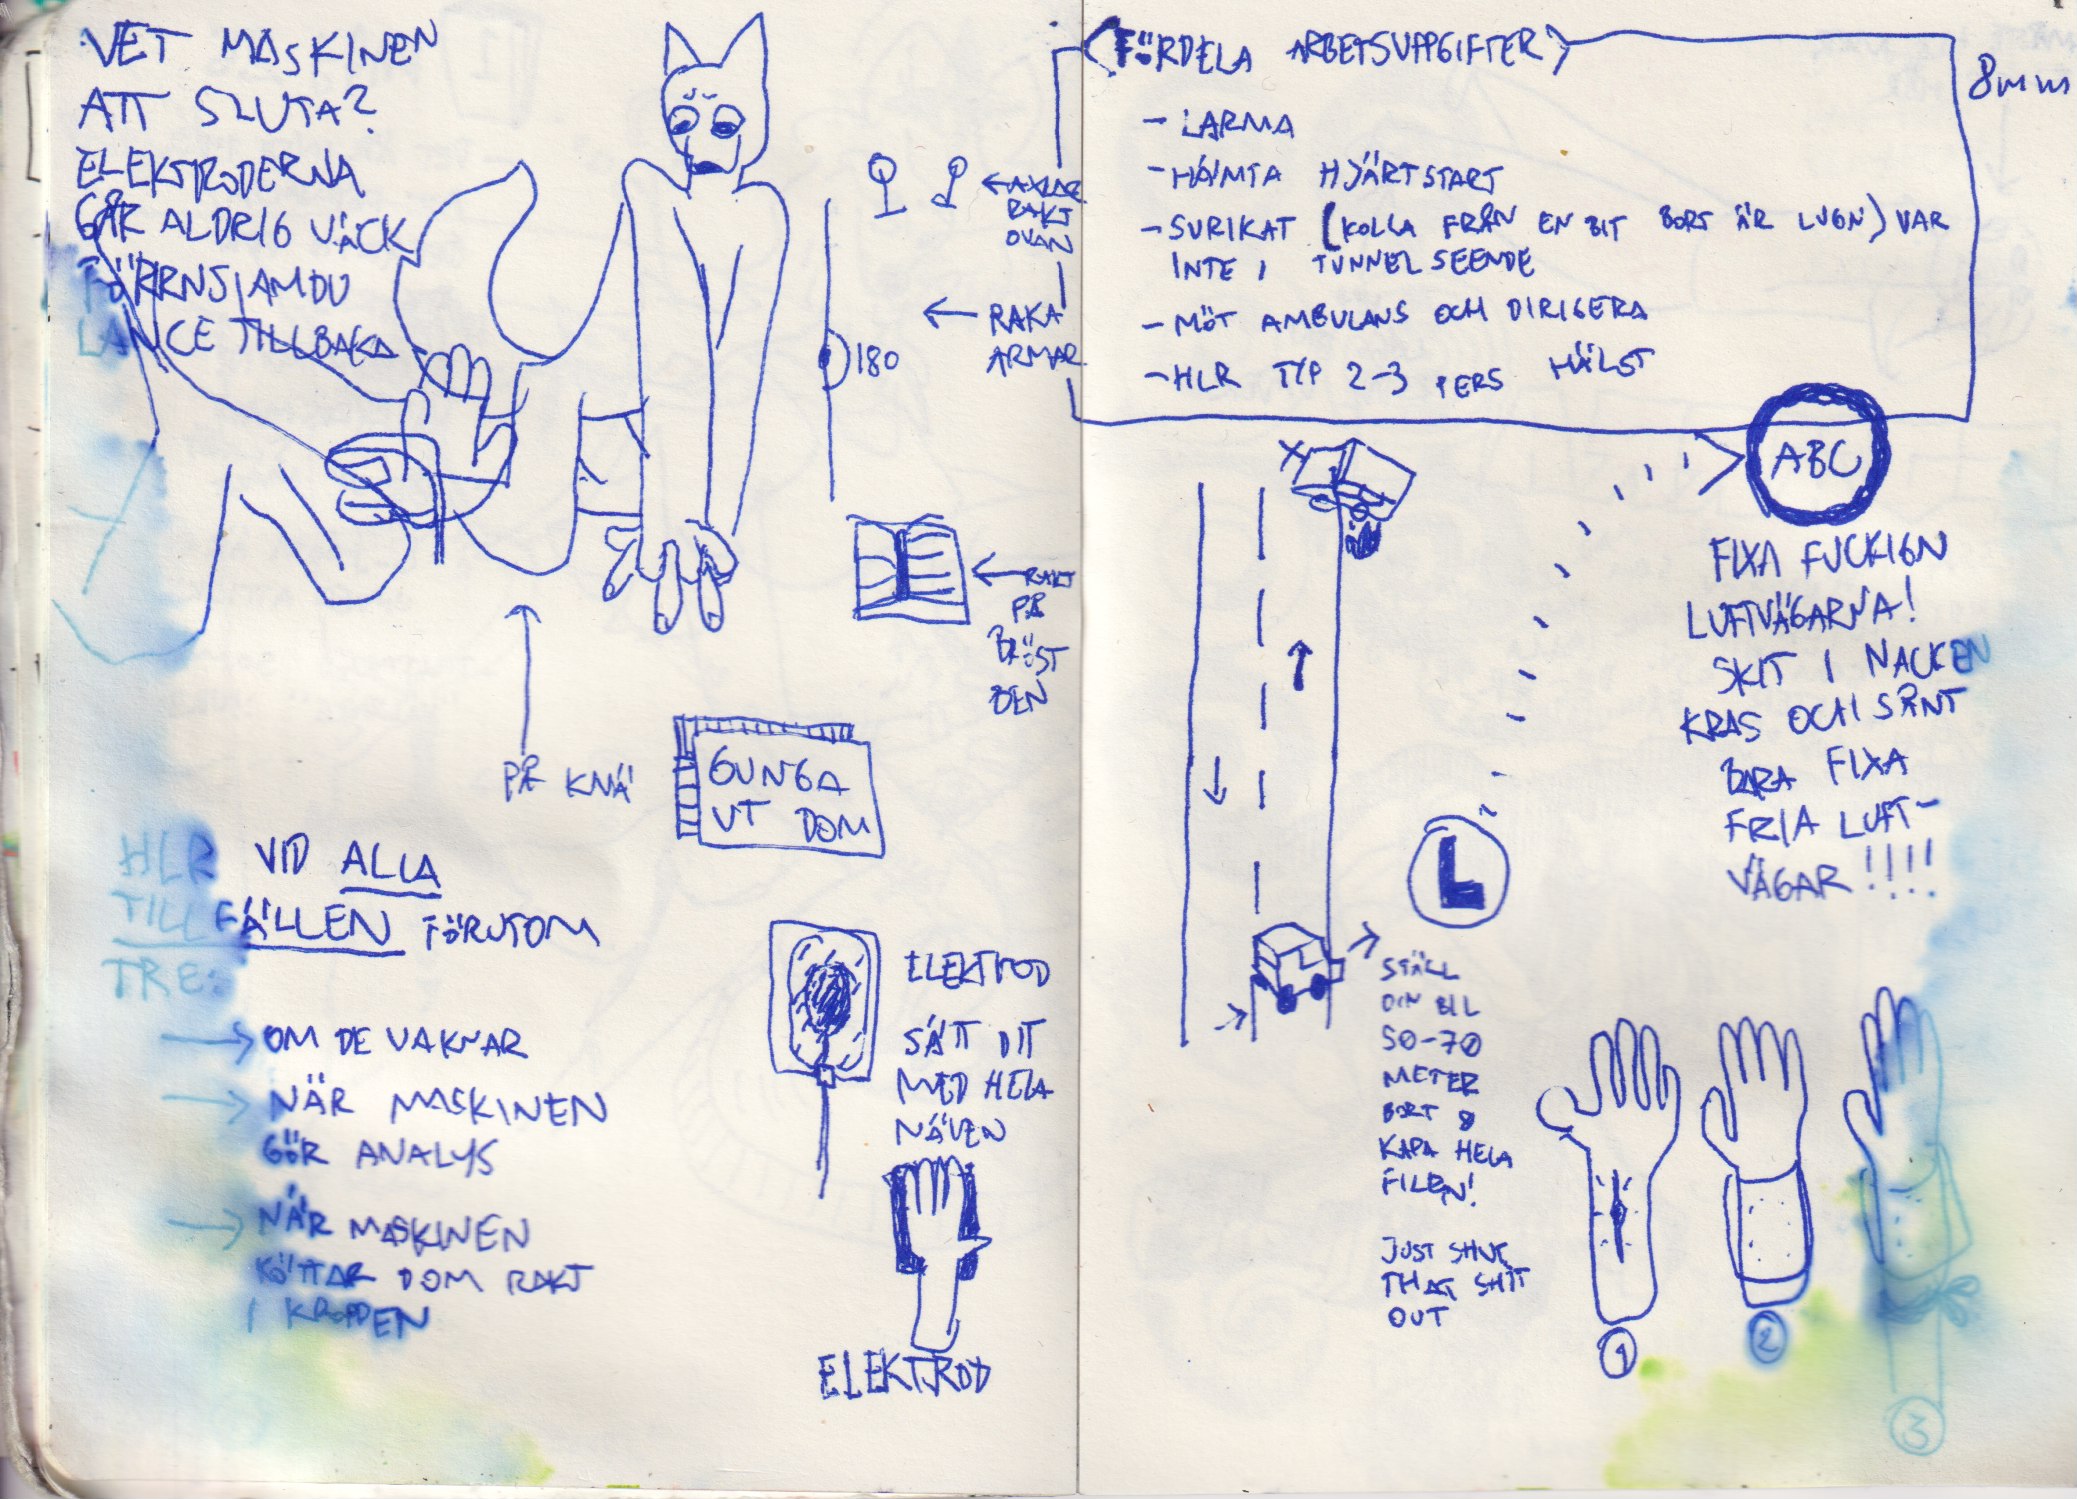 VET MASKINEN
ATT SLUTA?
ELEKTRODERNA
GÅR ALDRIG VÄCK
FÖRRNS AMBU
LANCE TILLBAKA
180
← AXLAR
RAKT
OVAN
← RAKA
ARMAR
← RAKT
PÅ
BRÖST
BEN
PÅ KNÄ
GUNGA
UT DOM
HLR VID ALLA
TILLFÄLLEN FÖRUTOM
TRE:
→ OM DE VAKNAR
→ NÄR MASKINEN
GÖR ANALYS
→ NÄR MASKINEN
KÖTTAR DOM RAKT
I KROPPEN
ELEKTROD
SÄTT DIT
MED HELA
NÄVEN
ELEKTROD
FÖRDELA ARBETSUPPGIFTER
8mm
- LARMA
- HÄMTA HJÄRTSTART
- SURIKAT (KOLLA FRÅN EN BIT BORT ÄR LUGN) VAR
INTE I TUNNELSEENDE
- MÖT AMBULANS OCH DIRIGERA
- HLR TYP 2-3 PERS HÄLST
ABC
FIXA FUCKIGN
LUFTVÄGARNA!
SKIT I NACKEN
KRAS OCH SÅNT
BARA FIXA
FRIA LUFT-
VÄGAR!!!!
L
STÄLL
DIN BIL
50-70
METER
BORT &
KAPA HELA
FILEN!
JUST SHUT
THAT SHIT
OUT
1
2
3